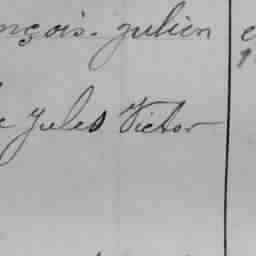 nçois. Julien
Jules Victor